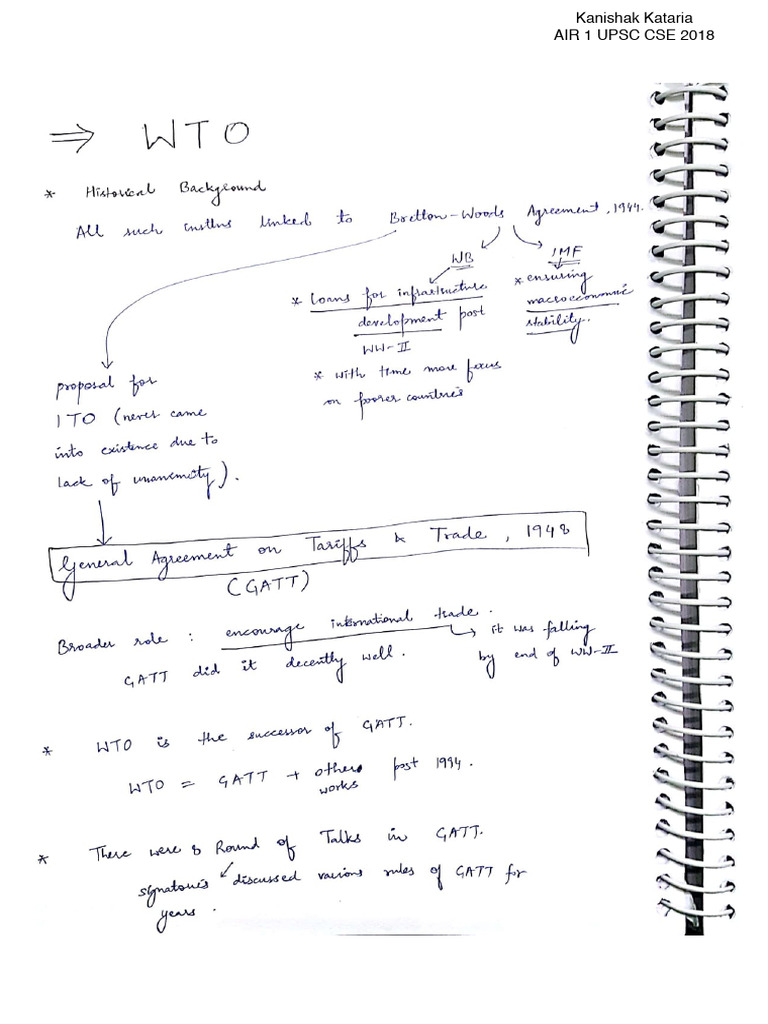 Kanishak Kataria
AIR 1 UPSC CSE 2018
⇒ WTO
* Historical Background
All such insttns linked to Bretton-Woods Agreement, 1944.
WB
* Loans for infrastructure
development post
WW-II
* with time more focus
on poorer countries
IMF
* ensuring
macroeconomic
stability.
proposal for
ITO (never came
into existence due to
lack of unanimity).
General Agreement on Tariffs & Trade, 1948
(GATT)
Broader role : encourage international trade.
→ it was falling
by end of WW-II
GATT did it decently well.
* WTO is the successor of GATT.
WTO = GATT + others post 1994.
works
* There were 8 Round of Talks in GATT.
signatories discussed various rules of GATT for
years.